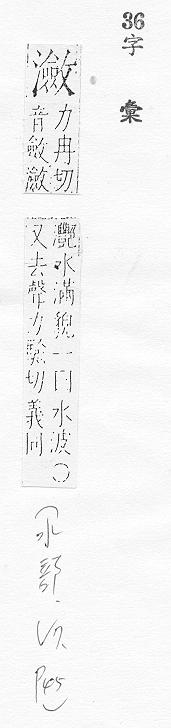 36
字彙
瀲
力冉切
音斂瀲
灩水滿貌一曰水波〇
又去聲力驗切義同
水部
P45